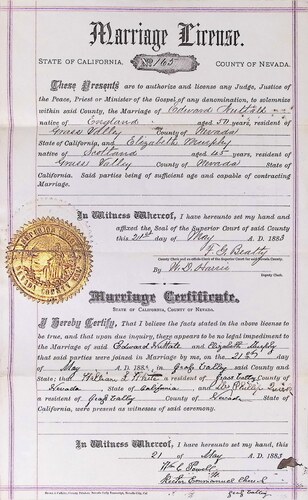 Marriage License.
STATE OF CALIFORNIA, No. 165 COUNTY OF NEVADA.
These Presents are to authorize and license any Judge, Justice of
the Peace, Priest or Minister of the Gospel of any denomination, to solemnize
within said County, the Marriage of Edward Nuttall
native of England aged 50 years, resident of
Grass Valley County of Nevada
State of California, and Elizabeth Murphy
native of Scotland aged 45 years, resident of
Grass Valley County of Nevada State of
California. Said parties being of sufficient age and capable of contracting
Marriage.
In Witness Whereof, I have hereunto set my hand and
affixed the Seal of the Superior Court of said County
this 21st day of May A. D. 1883
F. G. Beatty
County Clerk and ex-officio Clerk of the Superior Court in and for said County.
By W. D. Harris
Deputy Clerk.
Marriage Certificate.
STATE OF CALIFORNIA, COUNTY OF NEVADA.
I Hereby Certify, That I believe the facts stated in the above license to
be true, and that upon due inquiry, there appears to be no legal impediment
to the Marriage of said Edward and Elizabeth Murphy
that said parties were joined in Marriage by me, on the 21st day
of May A. D. 1883, in Grass Valley County and
State; that William a resident of Grass Valley County of
Nevada, State of California and Mrs
a resident of Grass Valley County of Nevada State of
California, were present as witnesses of said ceremony.
In Witness Whereof, I have hereunto set my hand, this
21 day of May A. D. 1883
Wm C. Powell
Rector Emmanuel Church
Grass Valley